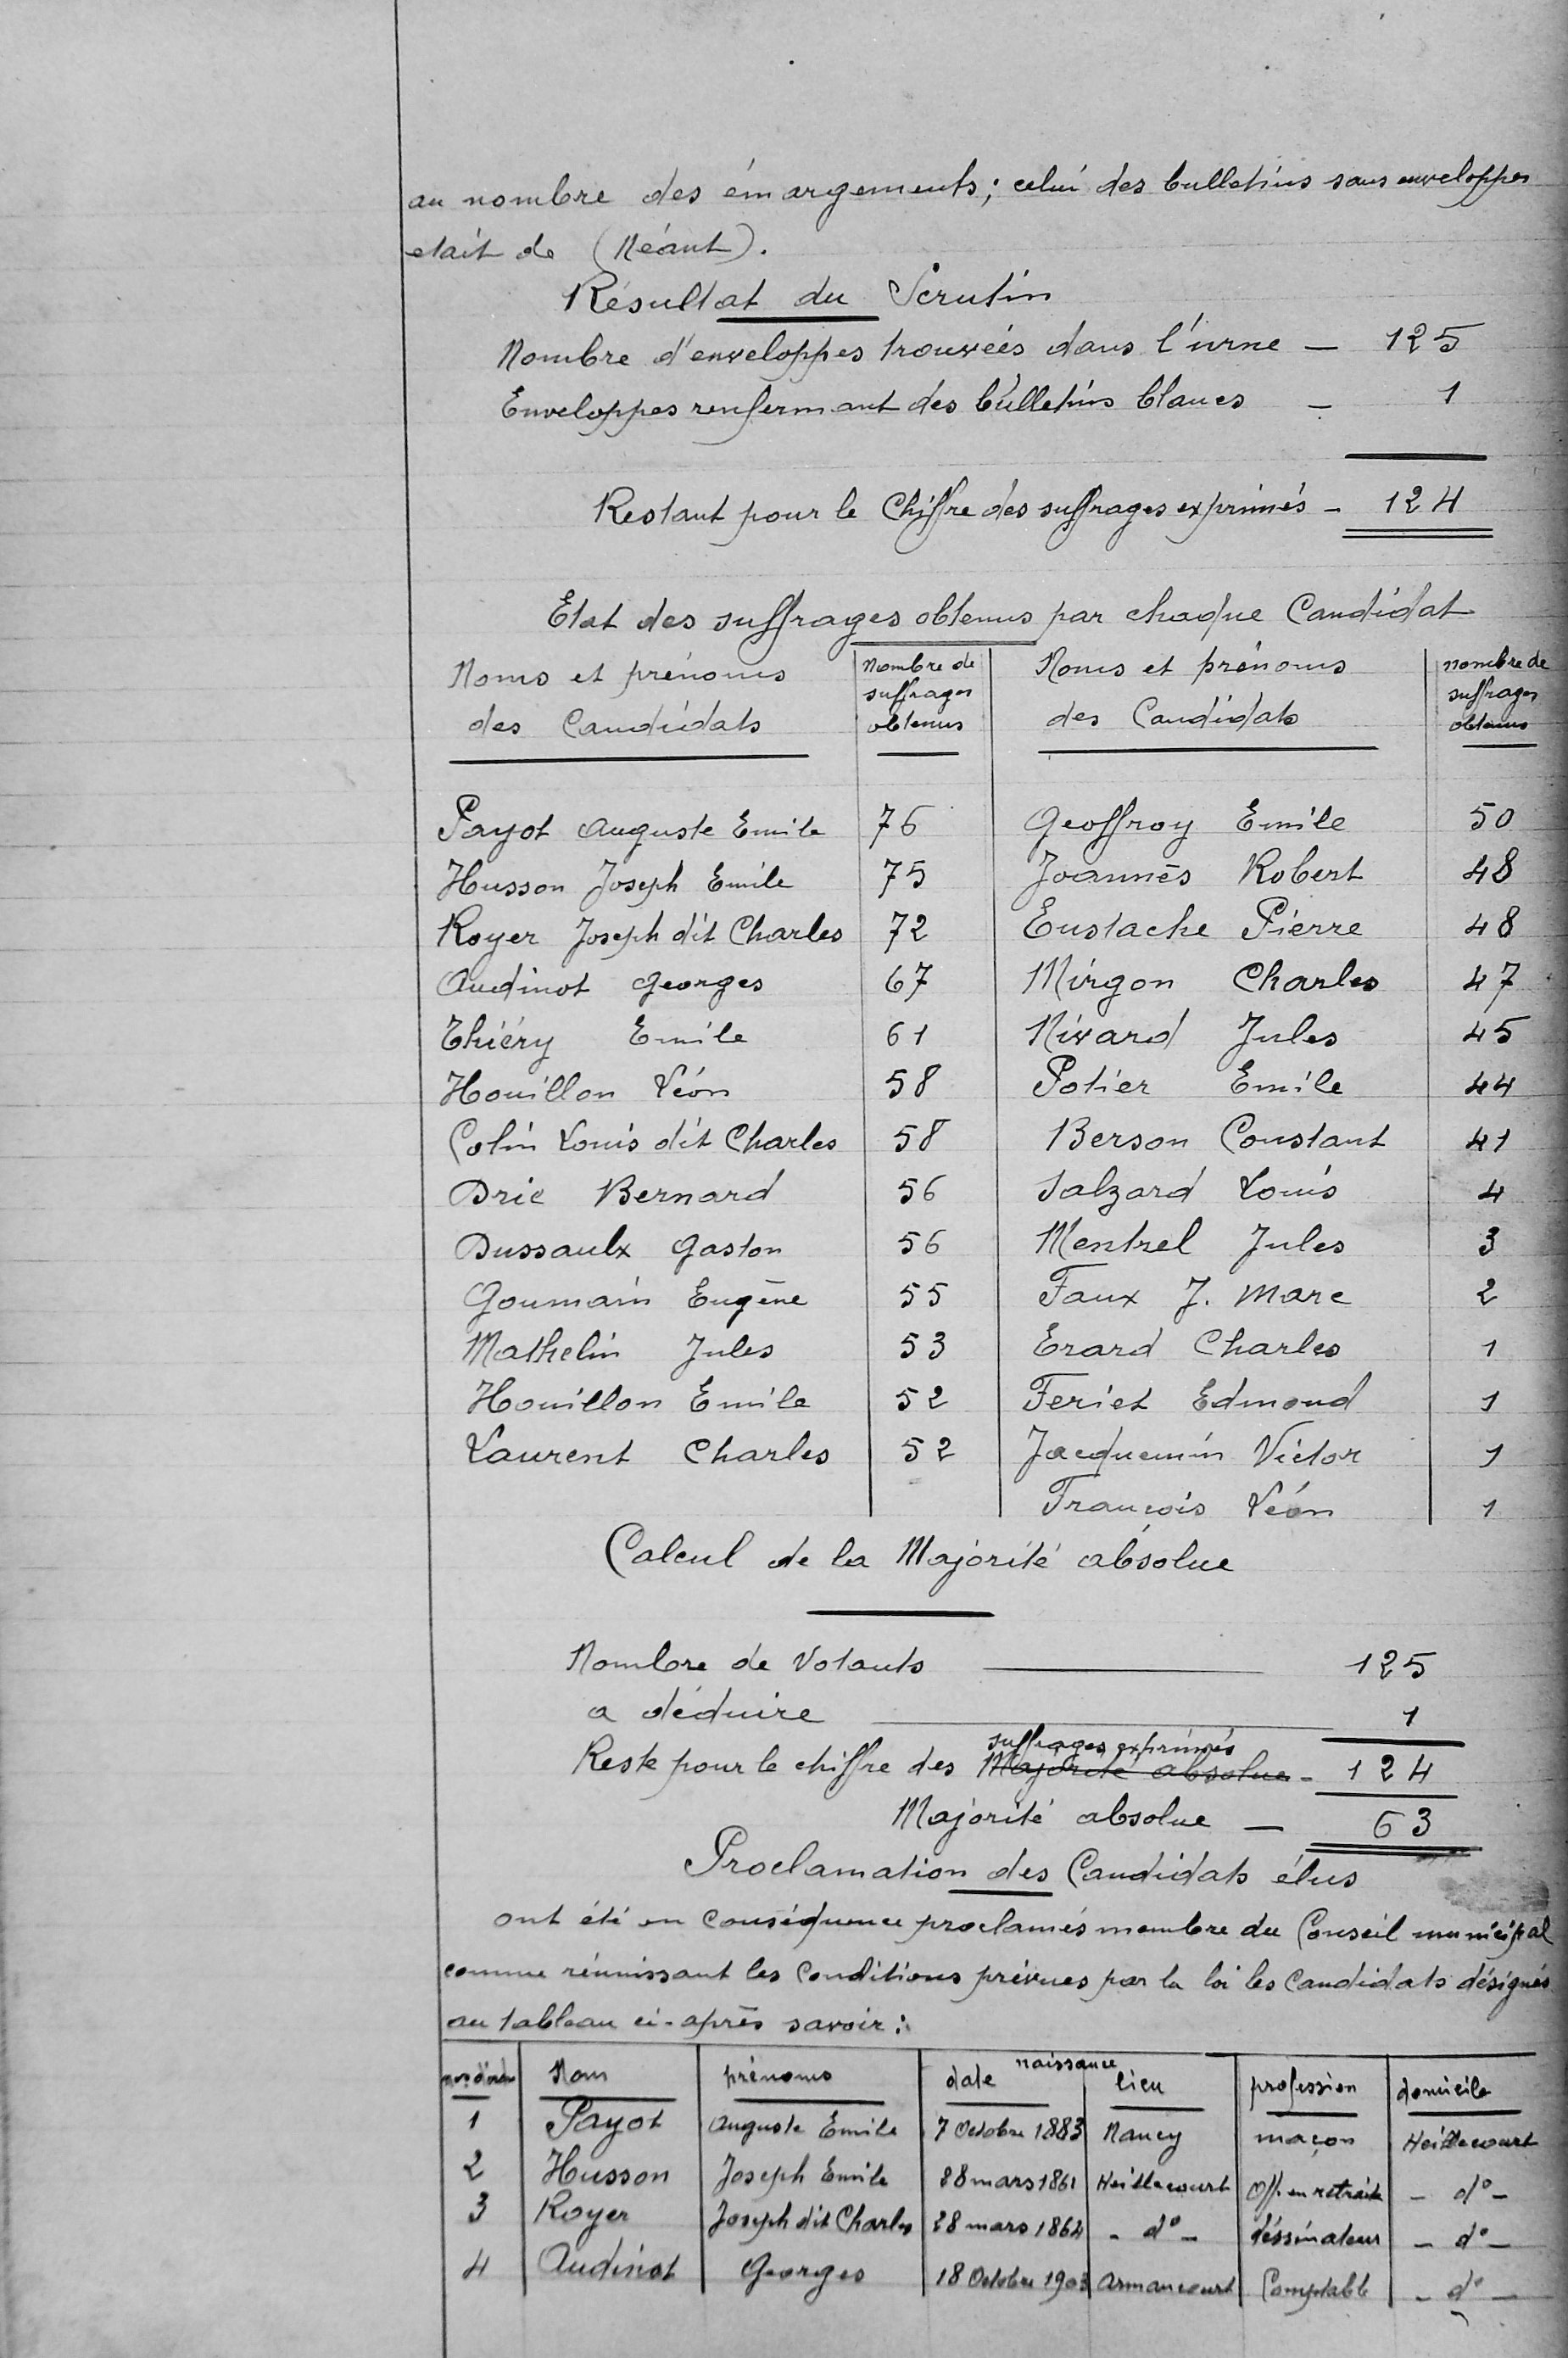 au nombre des émargements; celui des bulletins sans enveloppes
etait de (Néant).
Résultat du Scrutin
Nombre d'enveloppes trouvéés dans l'urne — 125
Enveloppes renfermant des bulletins blancs — 1
Restant pour le Chiffre des suffrages exprimés — 124
Etat des suffrages obtenus par chaque Candidat
Noms et prénoms des Candidats | Nombre de suffrages obtenus | Noms et prénoms des Candidats | nombre de suffrages obtenus
Payot Auguste Emile 76 Geoffroy Emile 50
Husson Joseph Emile 75 Joannès Robert 48
Royer Joseph dit Charles 72 Eustache Pierre 48
Audinot Georges 67 Mirgon Charles 47
Thiéry Emile 61 Nivard Jules 45
Houillon Léon 58 Potier Emile 44
Colin Louis dit Charles 58 Berson Constant 41
Drie Bernard 56 Salzard Louis 4
Dussaulx Gaston 56 Mentrel Jules 3
Goumain Eugène 55 Faux J. Marc 2
Mathelin Jules 53 Erard Charles 1
Houillon Emile 52 Feriet Edmond 1
Laurent Charles 52 Jacquemin Victor 1
François Léon 1
Calcul de la Majorité absolue
Nombre de Votants 125
a déduire 1
suffrages exprimés
Reste pour le chiffre des Majorité absolue - 124
Majorité absolue — 63
Proclamation des Candidats élus
ont été en conséquence proclamés membre du Conseil municipal
comme réunissant les conditions prévues par la loi les candidats désignés
au tableau ci-après savoir:
naissance
nos d'ordre Nom prénoms date lieu profession domicile
1 Payot Auguste Emile 7 Octobre 1883 Nancy maçon Heillecourt
2 Husson Joseph Emile 28 mars 1861 Heillecourt Off. en retraite - d° -
3 Royer Joseph dit Charles 28 mars 1864 - d° - déssinateur - d° -
4 Audinot Georges 18 Octobre 1903 Armaucourt Comptable - d° -